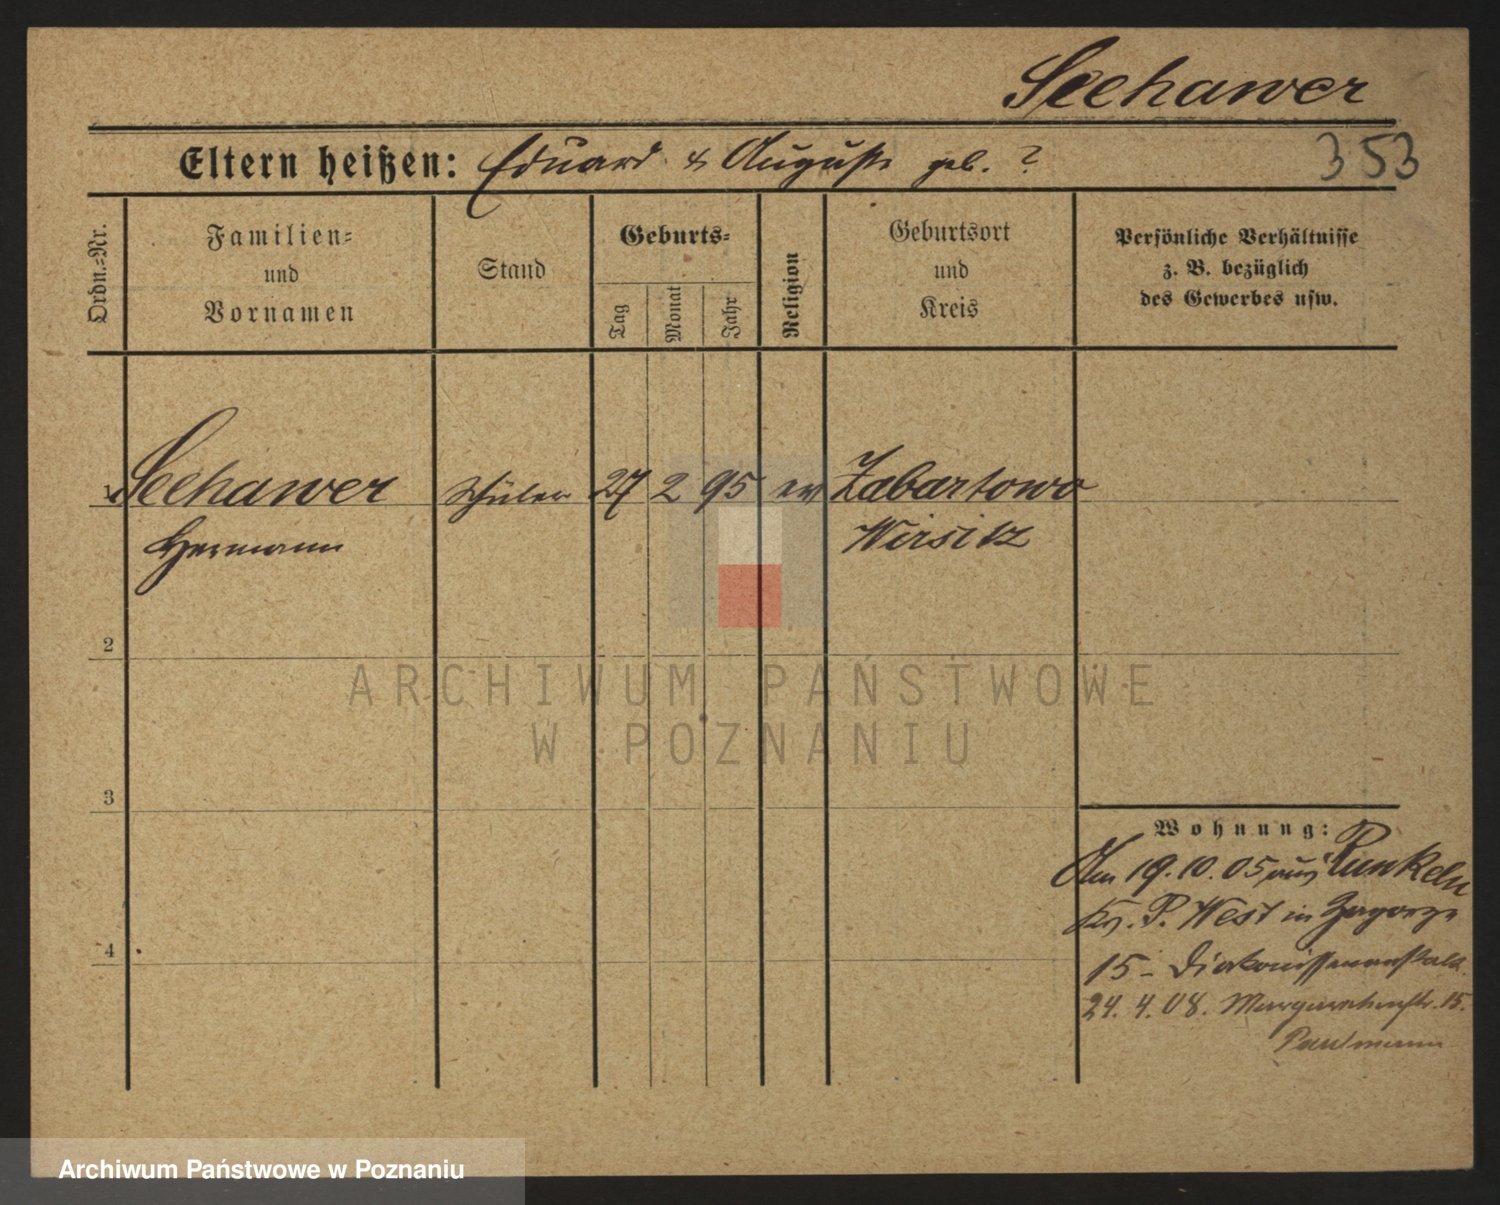 Seehawer
Eltern heißen: Eduard & Auguste geb. ?
353
Ordn.=Nr.
Familien=
und
Vornamen
Stand
Geburts=
Tag
Monat
Jahr
Religion
Geburtsort
und
Kreis
Persönliche Verhältnisse
z. B. bezüglich
des Gewerbes usw.
1 Seehawer Schüler 27 2 95 ev Zabartowo
Hermann Wirsitz
2
ARCHIWUM PAŃSTWOWE
W POZNANIU
3
Wohnung:
Am 19.10.05 aus Runkeln
Kr. P. West in Zagorze
15 - Diakonissenanstalt
24.4.08. Margarethenstr. 15.
4
Archiwum Państwowe w Poznaniu